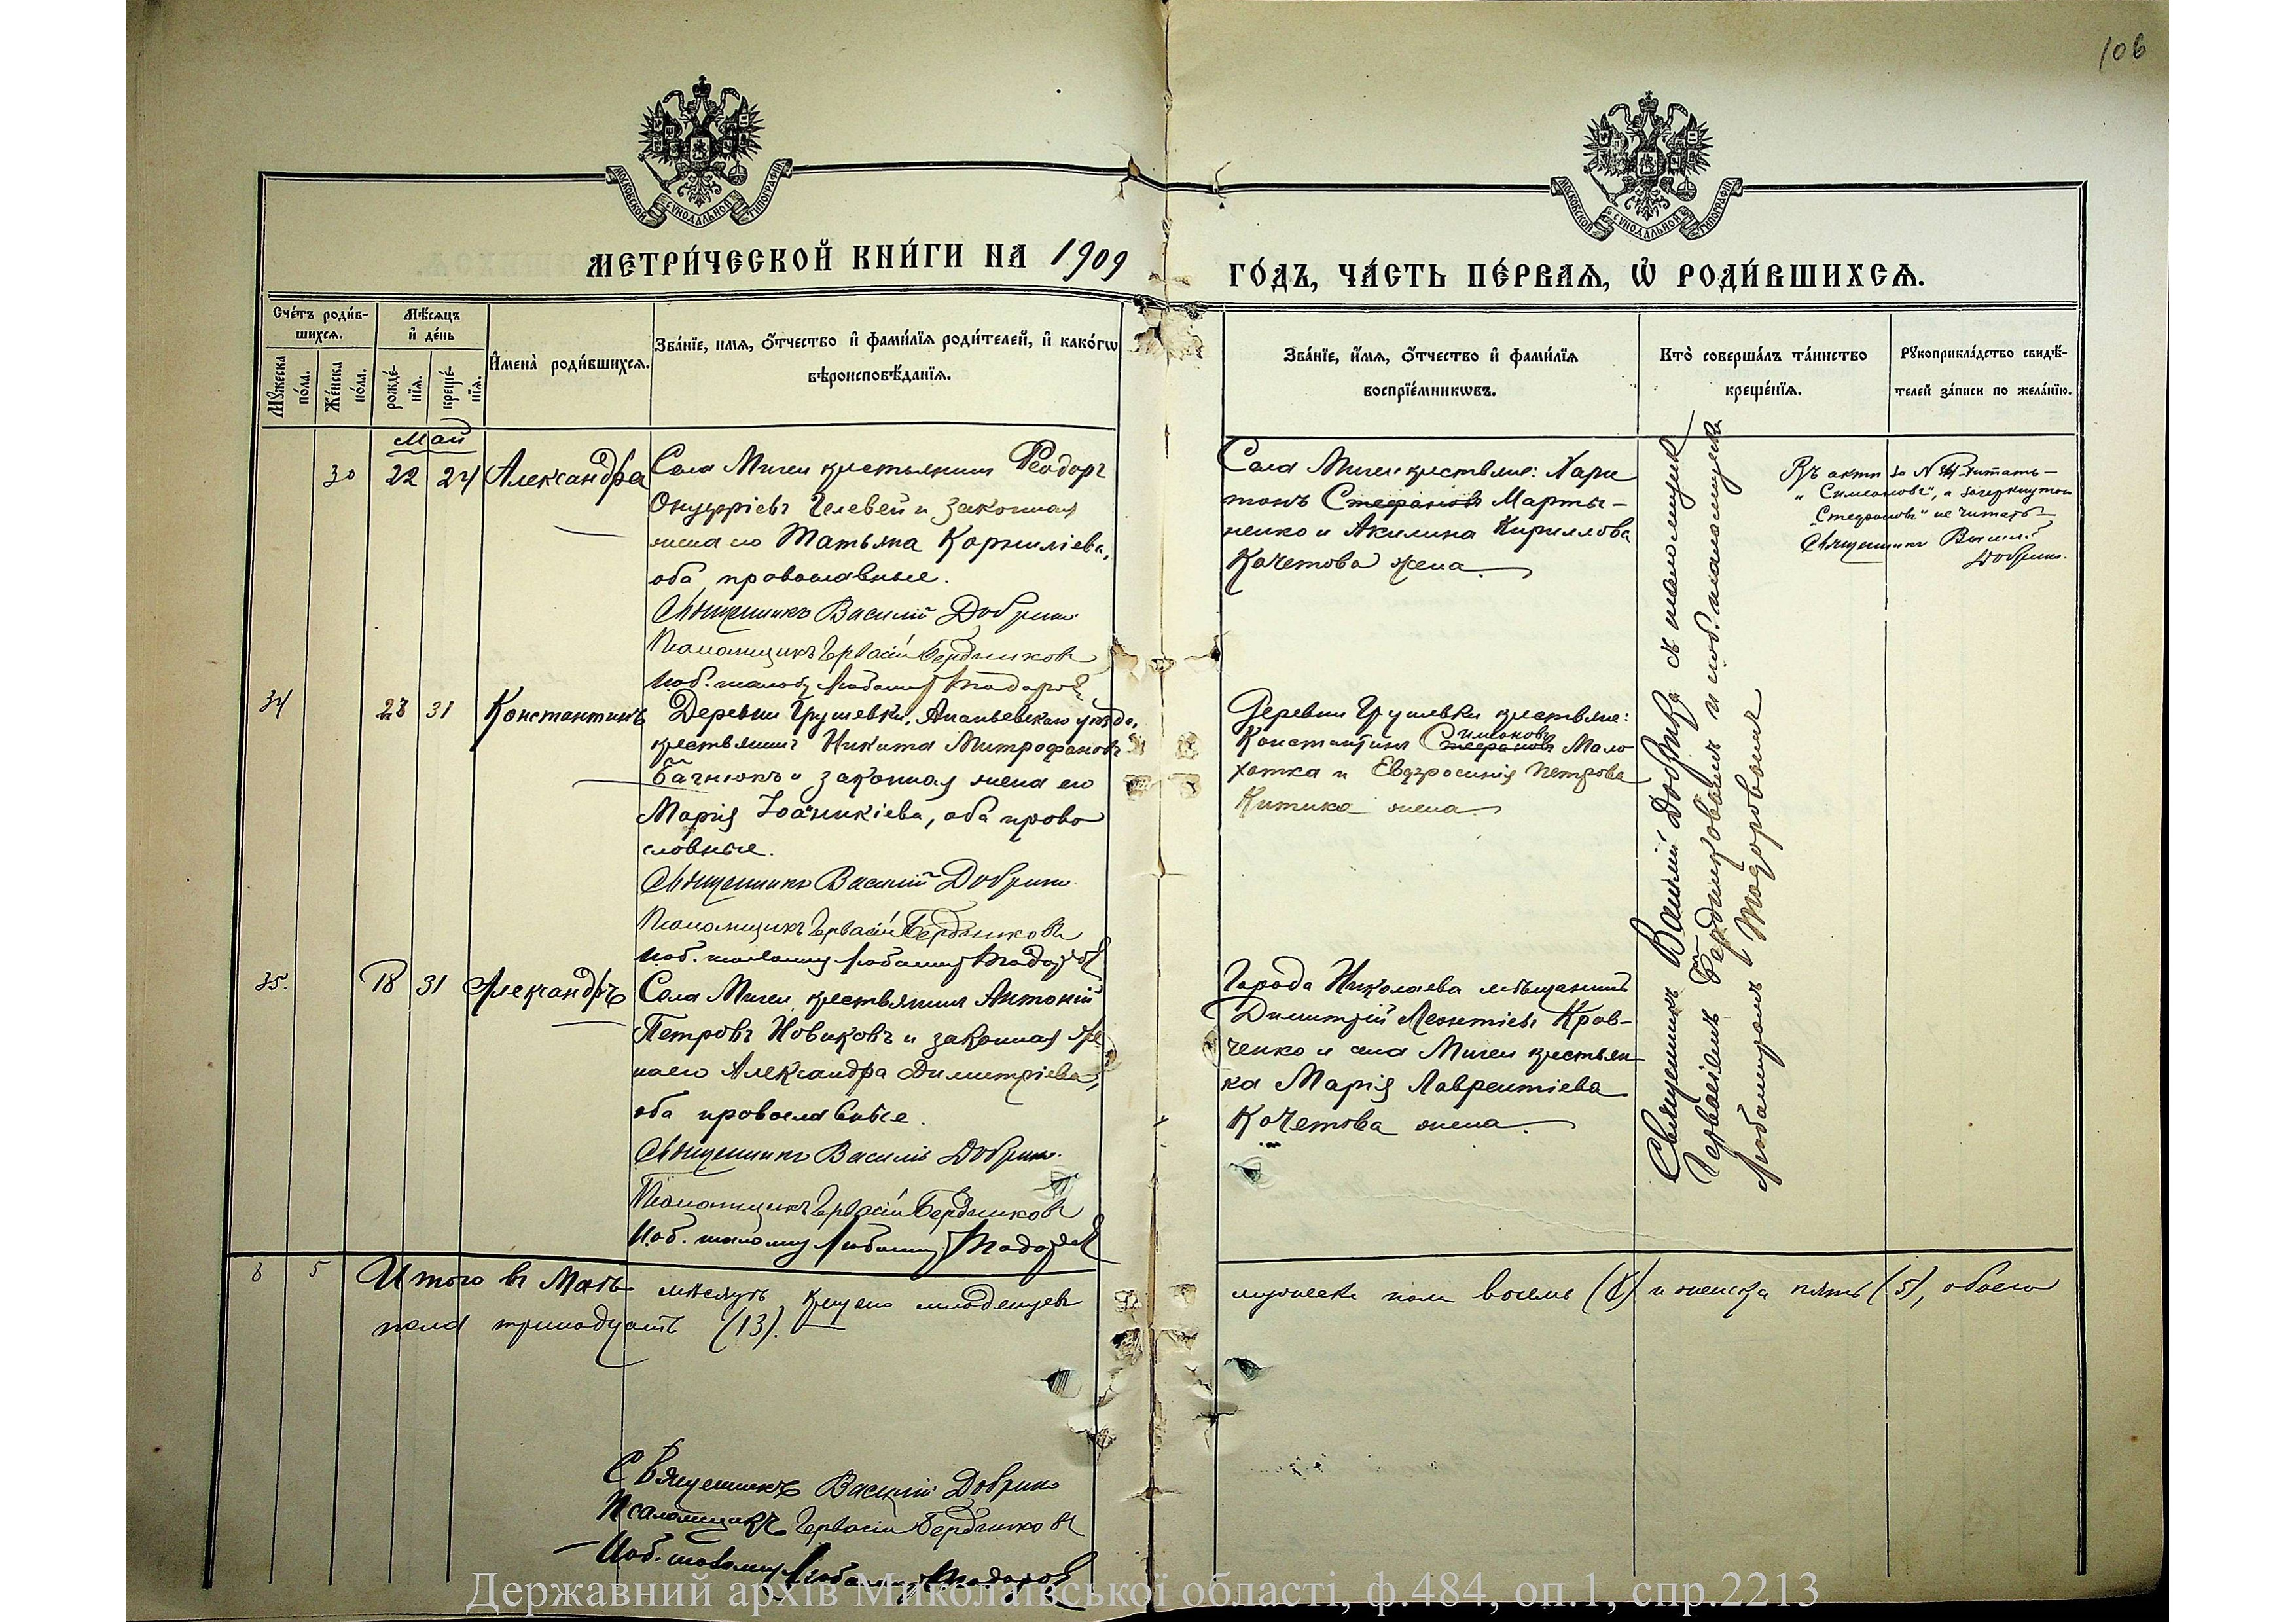 106
МОСКОВСКОЙ СУНОДАЛЬНОЙ ТИПОГРАФІИ
МОСКОВСКОЙ СУНОДАЛЬНОЙ ТИПОГРАФІИ
МЕТРИ́ЧЕСКОЙ КНИ́ГИ НА 1909
ГО́ДЪ, ЧА́СТЬ ПЕ́РВАѦ, Ѡ҆ РОДИ́ВШИХСѦ.
Сче́тъ роди́в-
шихсѧ.
Мꙋжеска по́ла.
Же́нска по́ла.
Мѣ́сѧцъ и҆ де́нь
рожде́-
нїѧ.
креще́-
нїѧ.
И҆мена̀ роди́вшихсѧ.
Зва́нїе, имѧ, ѻ҆́тчество и҆ фами́лїѧ роди́телей, и҆ како́гѡ
вѣроисповѣ́данїѧ.
Зва́нїе, и҆́мѧ, ѻ҆́тчество и҆ фами́лїѧ
воспрїе́мникѡвъ.
Кто̀ соверша́лъ та́инство
креще́нїѧ.
Рꙋкоприкла́дство свидѣ́-
телей за́писи по жела́нїю.
Май
30 22 24 Александра
Села Мигеи крестьянинъ Ѳеодоръ
Онуфріевъ Гелевей и законная
жена его Татьяна Корниліева,
оба православные.
Священникъ Василій Добрин
Псаломщикъ Гервасій Бердников
И.об. псаломщ Любомир Тодоров
Села Мигеи крестьяне: Хари
тонъ Стефановъ Марты-
ненко и Акилина Кириллова
Кочетова жена
Въ акте за № 34 читать
"Симеоновъ", а зачеркнутое
"Стефановъ" не читать
Священникъ Василій
Добрин
34 28 31 Константинъ
Деревни Грушевки, Ананьевскаго уѣзда,
крестьянинъ Никита Митрофановъ
Бачнюкъ и законная жена его
Марія Іоанникіева, оба право
славные.
Священникъ Василій Добрин
Псаломщикъ Гервасій Бердников
И.об. псаломщ Любомир Тодоров
Деревни Грушевки крестьяне:
Симеоновъ
Константинъ Стефановъ Мало
хатка и Евфросинія Петрова
Китика жена
35. 18 31 Александръ
Села Мигеи крестьянинъ Антоній
Петровъ Новиковъ и законная же
на его Александра Димитріева,
оба православные.
Священникъ Василій Добрин
Псаломщикъ Гервасій Бердников
И.об. псаломщ Любомир Тодоров
Города Николаева мѣщанинъ
Димитрій Леонтіевъ Крав-
ченко и села Мигеи крестьян-
ка Марія Лаврентіева
Кочетова жена
Священникъ Василій Добрин съ псаломщик
Гервасіемъ Бердниковымъ и и.об. псаломщика
Любомиромъ Тодоровымъ
8 5 Итого въ Маѣ мѣсяцѣ крещено младенцевъ
мужеска пола восемь (8) и женска пять (5), обоего
пола тринадцать (13).
Священникъ Василій Добрин
Псаломщикъ Гервасій Бердников
И.об. псаломщ Любомир Тодоров
Державний архів Миколаївської області, ф.484, оп.1, спр.2213